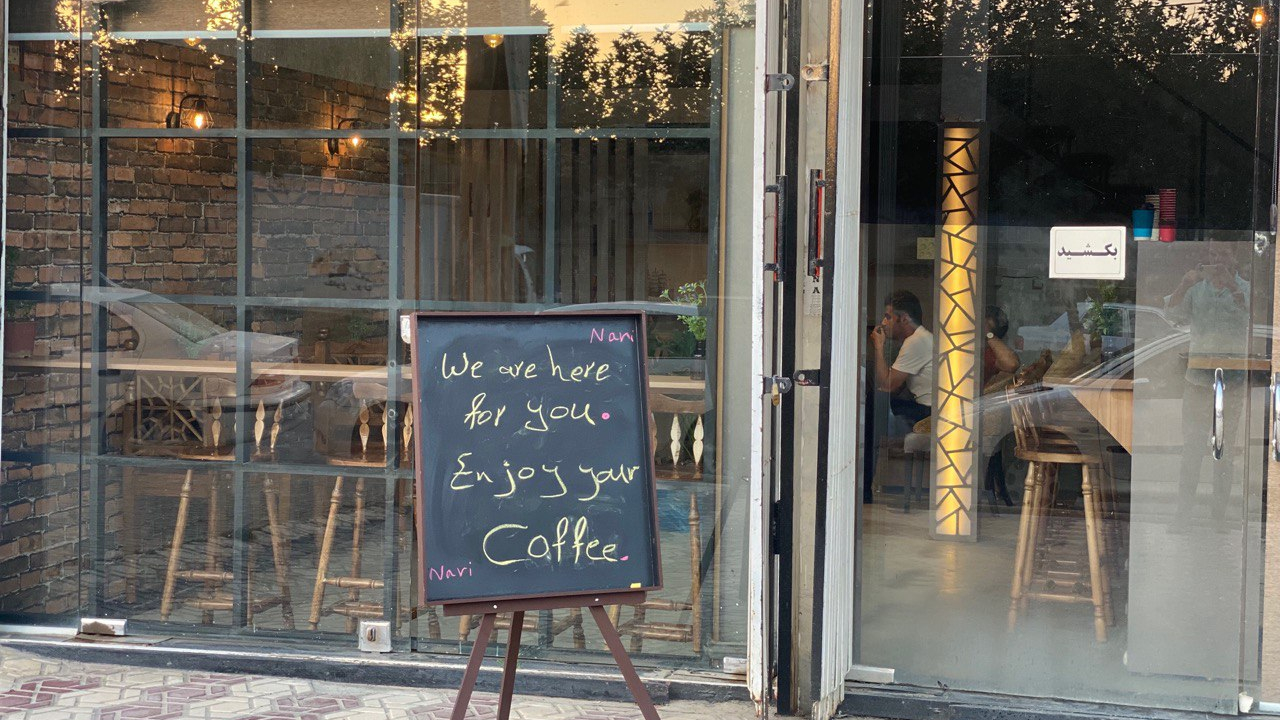 Nari
We are here
for you.
Enjoy your
Coffee.
Nari
بکشید